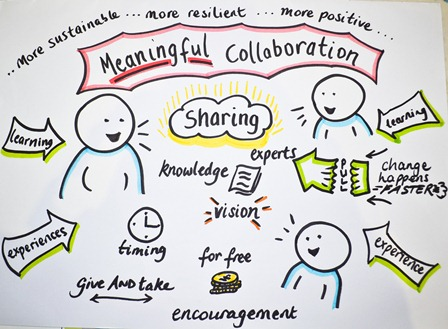 ...more sustainable... ...more resilient ... ...more positive...
Meaningful Collaboration
learning
Sharing
learning
knowledge
experts
PULL
change
happens
=FASTER
experiences
timing
vision
for free
experience
Give AND take
encouragement